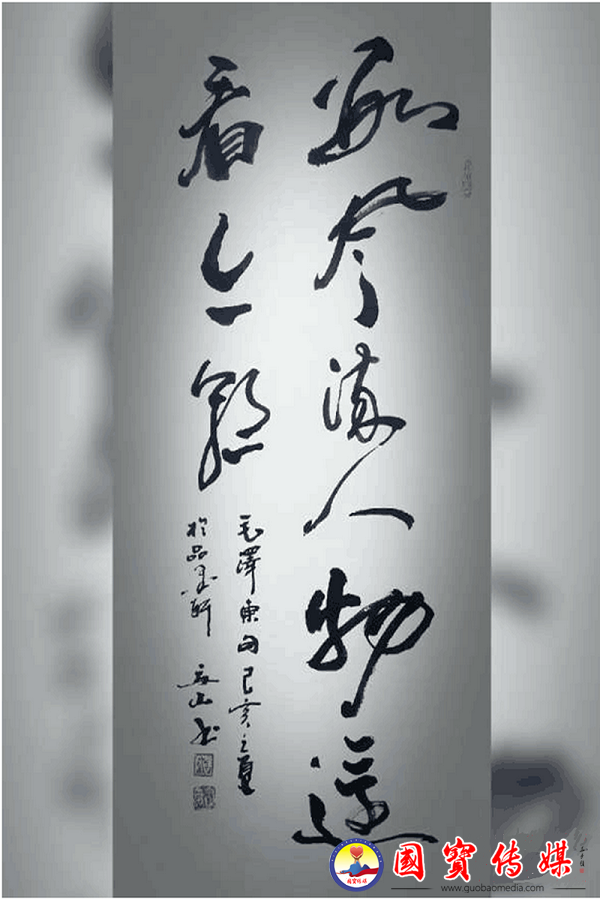 數風流人物還
看今朝
毛澤東句己亥之夏
於品墨軒 山书
國寶传媒
國寶传媒
www.guobaomedia.com